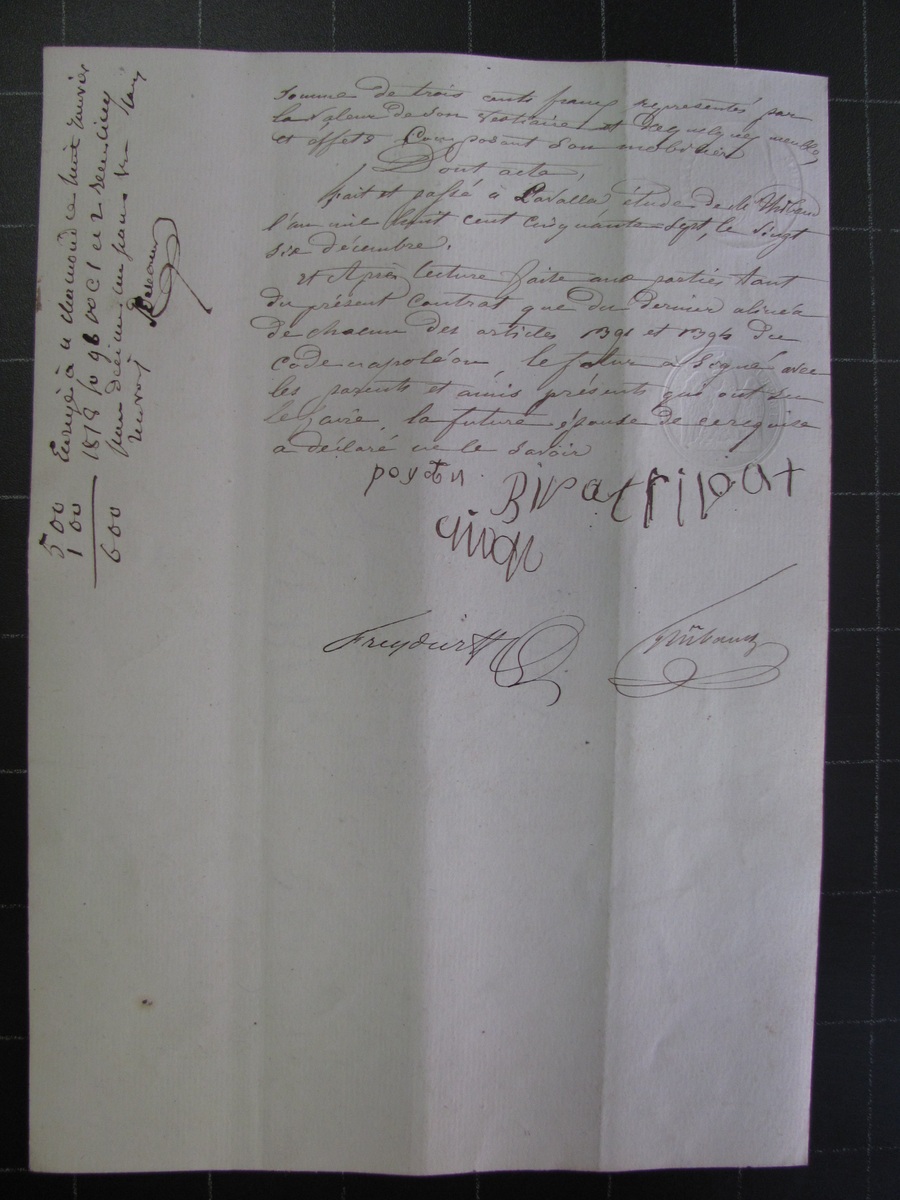 somme de trois cents francs représentés par
la valeur de son vestiaire et de quelques meubles
et effets composant son mobilier
Dont acte,
fait et passé à Lavalla étude de Me Thibaud
l'an mil huit cent cinquante sept, le vingt
six décembre.
et après lecture faite aux parties tant
du présent contrat que du dernier alinéa
de chacun des articles 1391 et 1394 du
code napoléon, le futur a signé avec
les parents et amis présents qui ont su
le faire, la future épouse de ce requise
a déclaré ne le savoir
poyton
Rivat rivat
Freydier
Thibaud
Enregé à St chamond le huit Janvier
1858 fo 98 Vo C1 et 2 reçu cinq
francs décime un franc
500
100
600